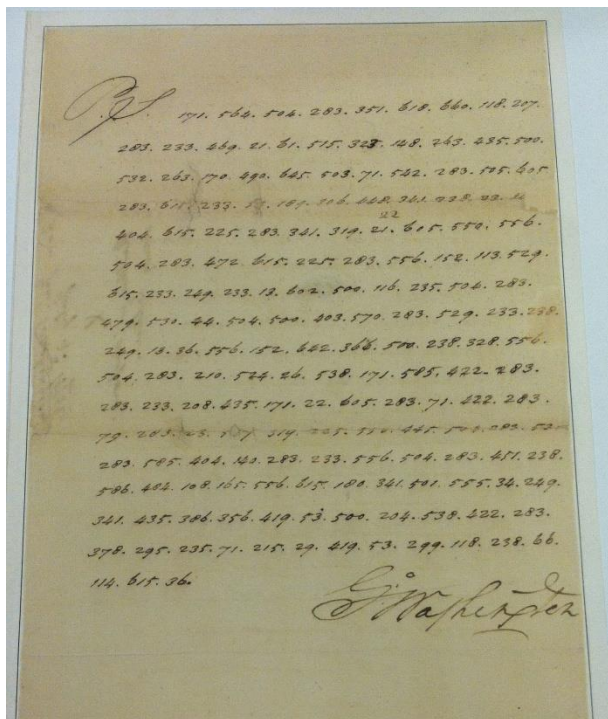 P.S. 171. 564. 504. 283. 351. 618. 660. 118. 207.
283. 233. 469. 21. 61. 515. 323. 148. 263. 435. 500.
532. 263. 170. 490. 645. 503. 71. 542. 283. 505. 605
283. 615. 233. 341. 228.
22
404. 615. 225. 283. 341. 319. 21. 605. 550. 556.
504. 283. 472. 615. 225. 283. 556. 152. 113. 529.
615. 233. 249. 233. 13. 602. 500. 116. 235. 504. 283.
479. 530. 44. 504. 500. 403. 570. 283. 529. 233. 238.
249. 13. 36. 556. 152. 642. 366. 500. 238. 328. 556.
504. 283. 210. 524. 26. 538. 171. 585. 422. 283.
283. 233. 208. 435. 171. 22. 605. 283. 71. 422. 283.
79. 283.
283. 585. 404. 140. 283. 233. 556. 504. 283. 451. 238.
586. 108. 165. 556. 615. 180. 341. 501. 555. 34. 249.
341. 435. 386. 356. 419. 53. 500. 204. 538. 422. 283.
378. 295. 235. 71. 215. 29. 419. 53. 299. 118. 238. 66.
114. 615. 36.
G. Washington